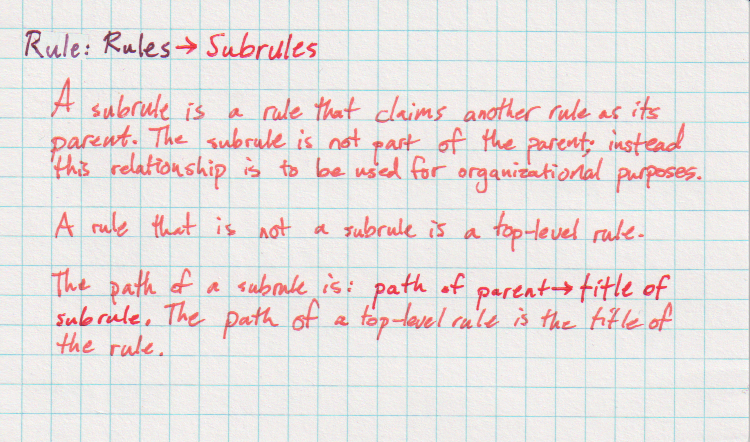 Rule: Rules → Subrules
A subrule is a rule that claims another rule as its
parent. The subrule is not part of the parent; instead
this relationship is to be used for organizational purposes.
A rule that is not a subrule is a top-level rule.
The path of a subrule is: path of parent → title of
subrule. The path of a top-level rule is the title of
the rule.